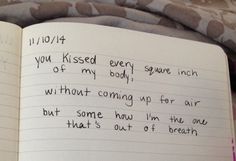 11/10/14
you kissed every square inch
of my body,
without coming up for air
but some how I'm the one
that's out of breath